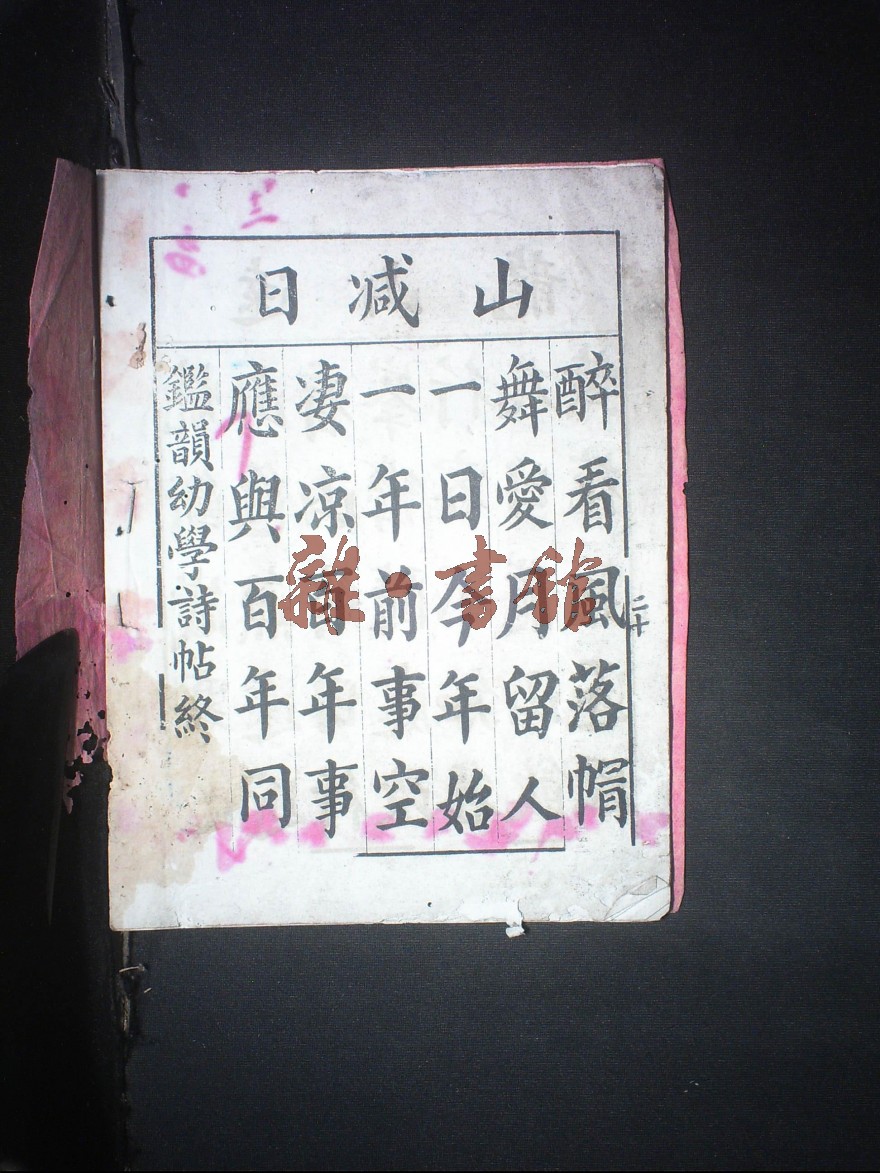 山減日
醉看風落帽
舞愛月留人
一日今年始
一年前事空
凄凉百年事
應與百年同
鑑韻幼學詩帖終
二十
雜·書館